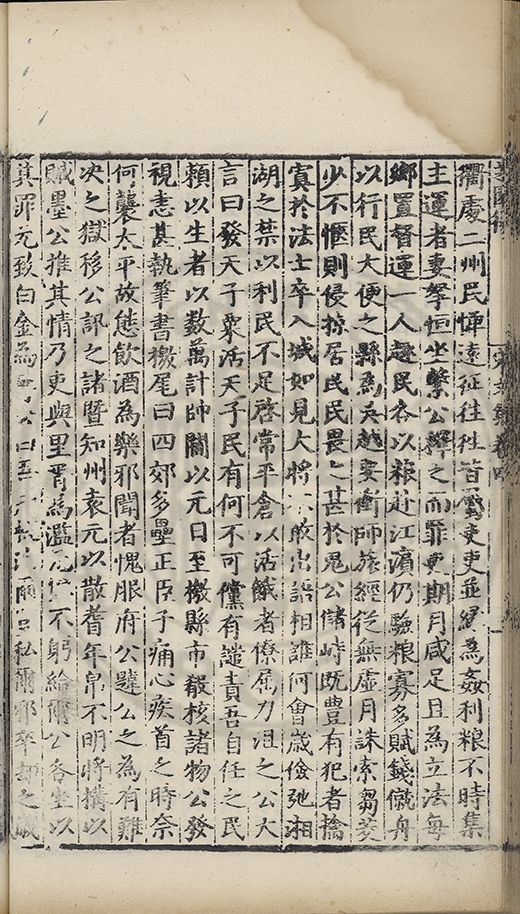 衢處二州民憚遠征往往皆賂吏吏並緣為姦利粮不時集
主運者妻孥恒坐繫公釋之而罪吏期月咸足且為立法每
鄉置督運一人趣民各以粮赴江濱仍驗粮寡多賦錢僦舟
以行民大便之縣為吳越要衝師旅經從無虛月誅索芻茭
少不愜則侵掠居民民畏之甚於鬼公儲峙既豊有犯者擒
寘於法士卒入城如見大將不敢出誤相誰何會歲儉弛湘
湖之禁以利民不足啓常平倉以活餓者僚属力沮之公大
言曰發天子粟活天子民有何不可儻有譴責吾自任之民
賴以生者以数萬計帥閫以元日至檄縣市殽核諸物公發
視恚甚執筆書檄尾曰四郊多壘正臣子痛心疾首之時奈
何襲太平故態飲酒為樂邪聞者愧服府公韙公之為有難
决之獄移公訊之諸暨知州袁元以散耆年帛不明將搆以
贓墨公推其情乃吏與里胥為濫元不躬給爾公咨坐以
其罪元致白金為曰吾法爾豈私爾邪卒却之歲